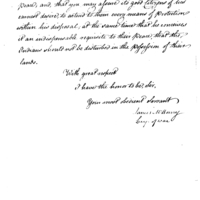 peace, and that you may assure the good citizens of his
cannot swerve, to extend to them every means of protection
within his disposal, at the same time that he considers
it an indispensable requisite to their peace, that the
Indians should not be disturbed in the possession of their
lands.
With great respect
I have the honor to be, Sir,
Your most obedient Servant
James McHenry
Secy. of war